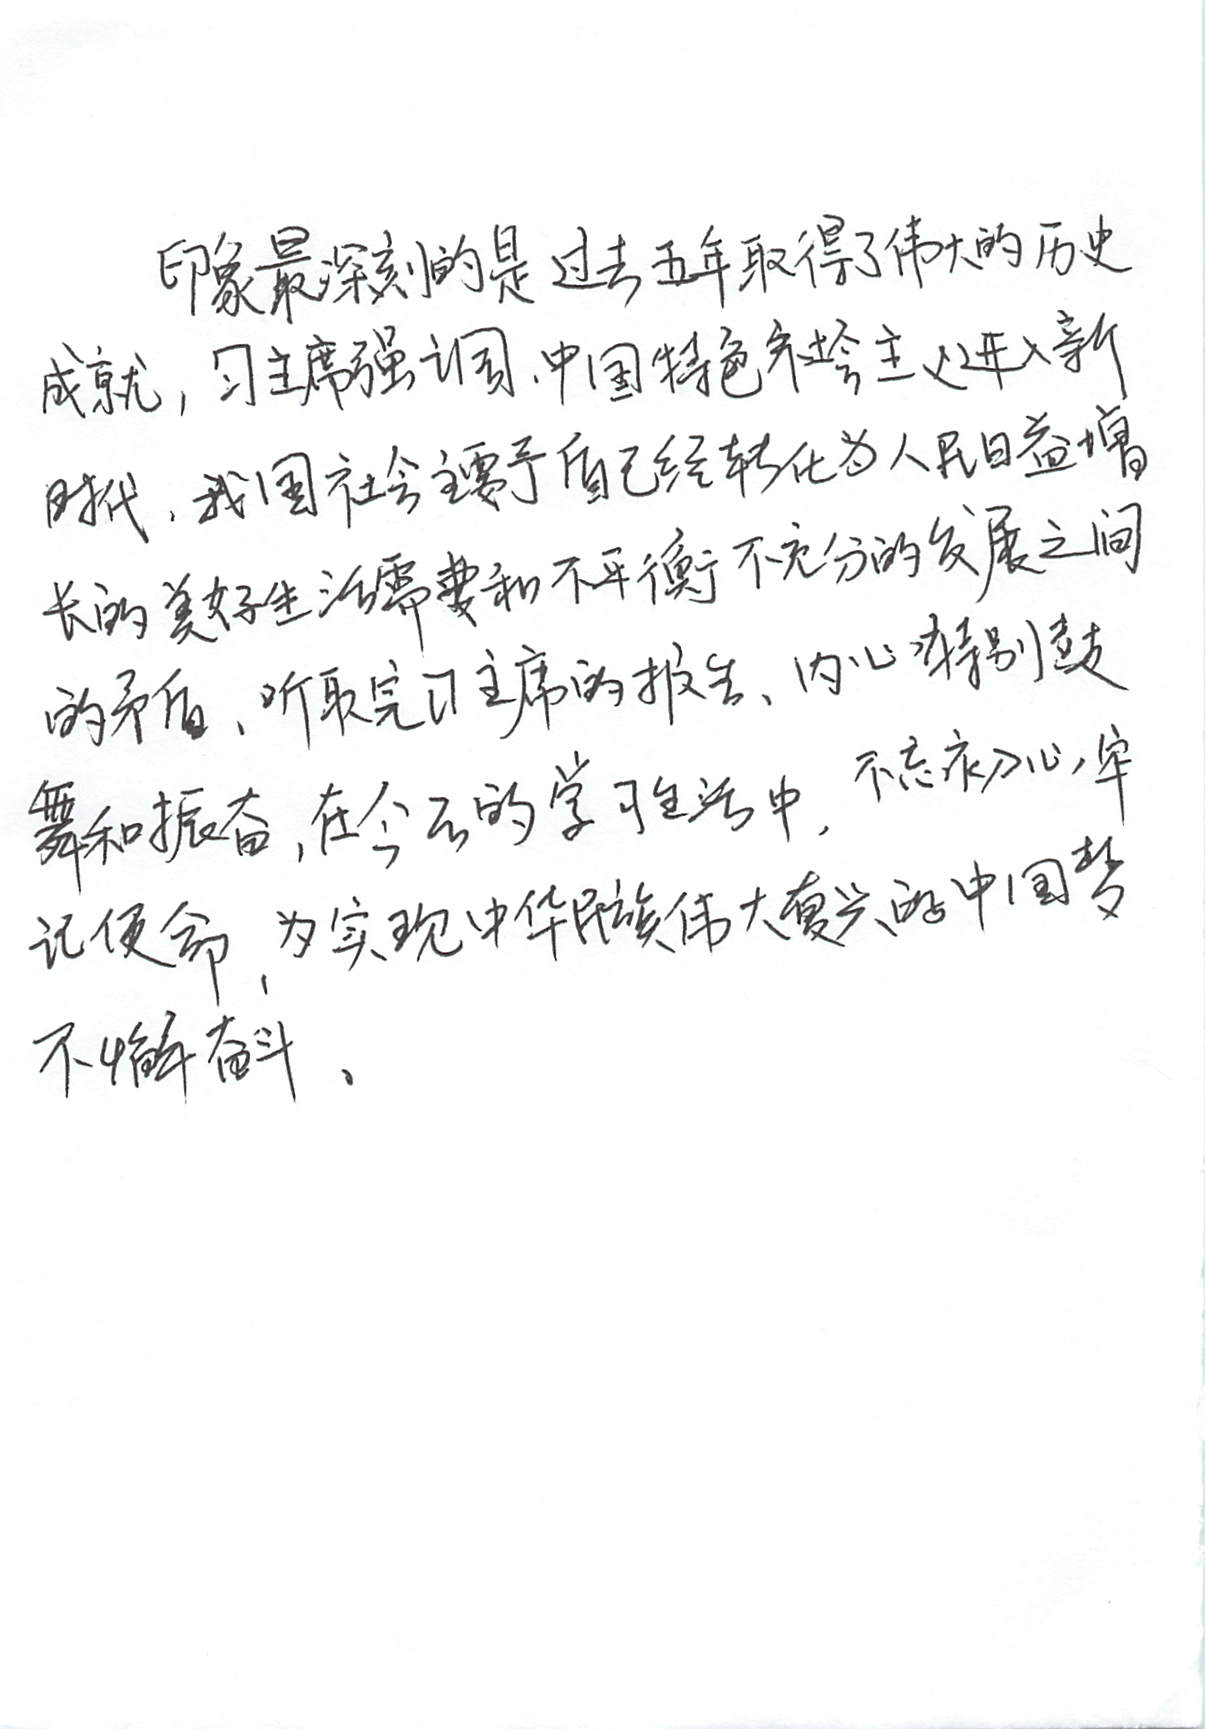 印象最深刻的是过去五年取得了伟大的历史
成就，习主席强调、中国特色社会主义进入新
时代、我国社会主要矛盾已经转化为人民日益增
长的美好生活需要和不平衡不充分的发展之间
的矛盾、听取完习主席的报告、内心特别鼓
舞和振奋，在今后的学习生活中，不忘初心，牢
记使命，为实现中华民族伟大复兴的中国梦
不懈奋斗、